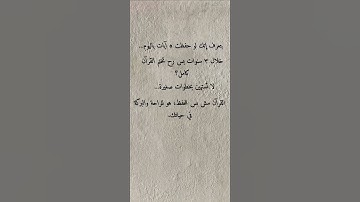 بتعرف إنك لو حفظت ٥ آيات باليوم...
خلال ٣ سنوات بس رح تختم القرآن
كامل؟
لا تستهين بخطوات صغيرة...
القرآن مش بس للحفظ، هو للراحة والبركة
في حياتك.